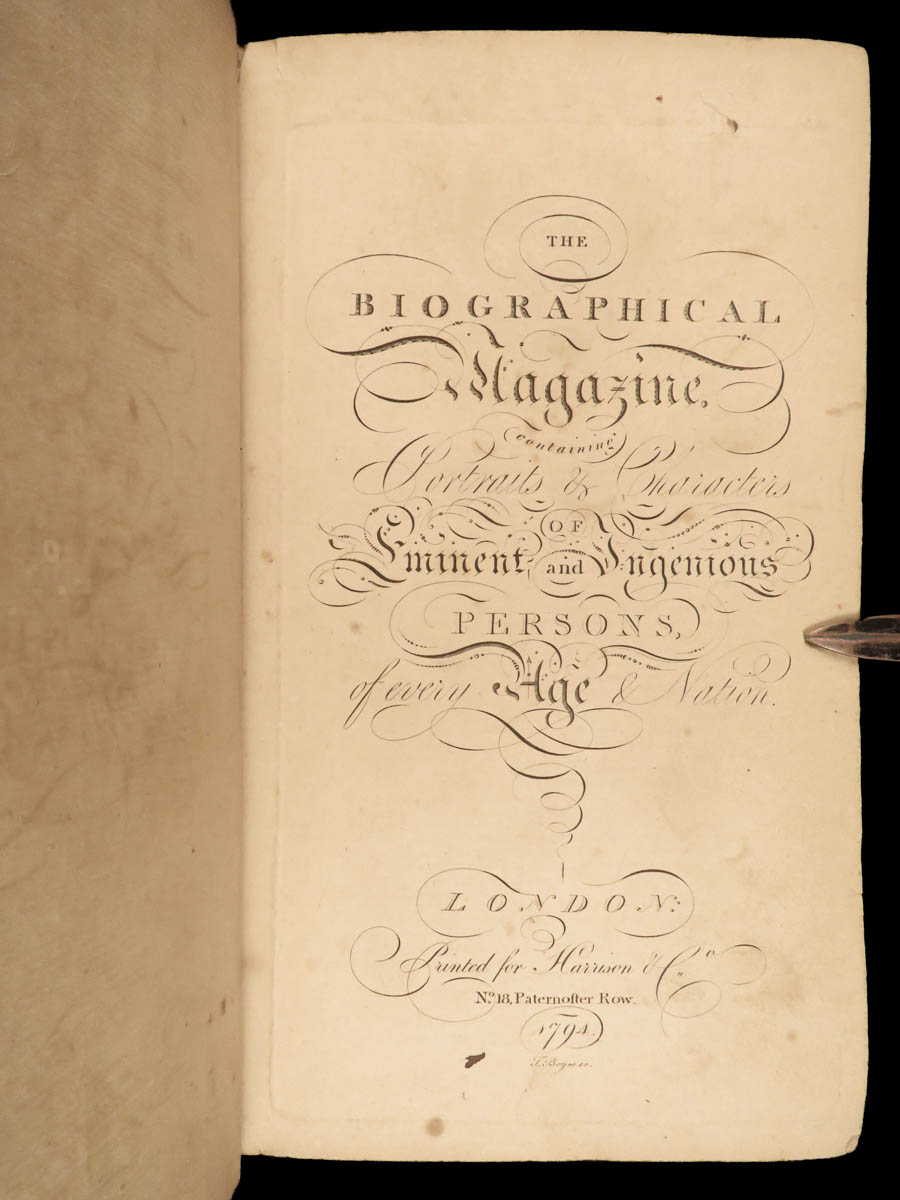 THE
BIOGRAPHICAL
Magazine,
containing
Portraits & Characters
OF
Eminent and Ingenious
PERSONS,
of every Age & Nation.
LONDON:
Printed for Harrison & Co.
No. 18, Paternoſter Row.
1794.